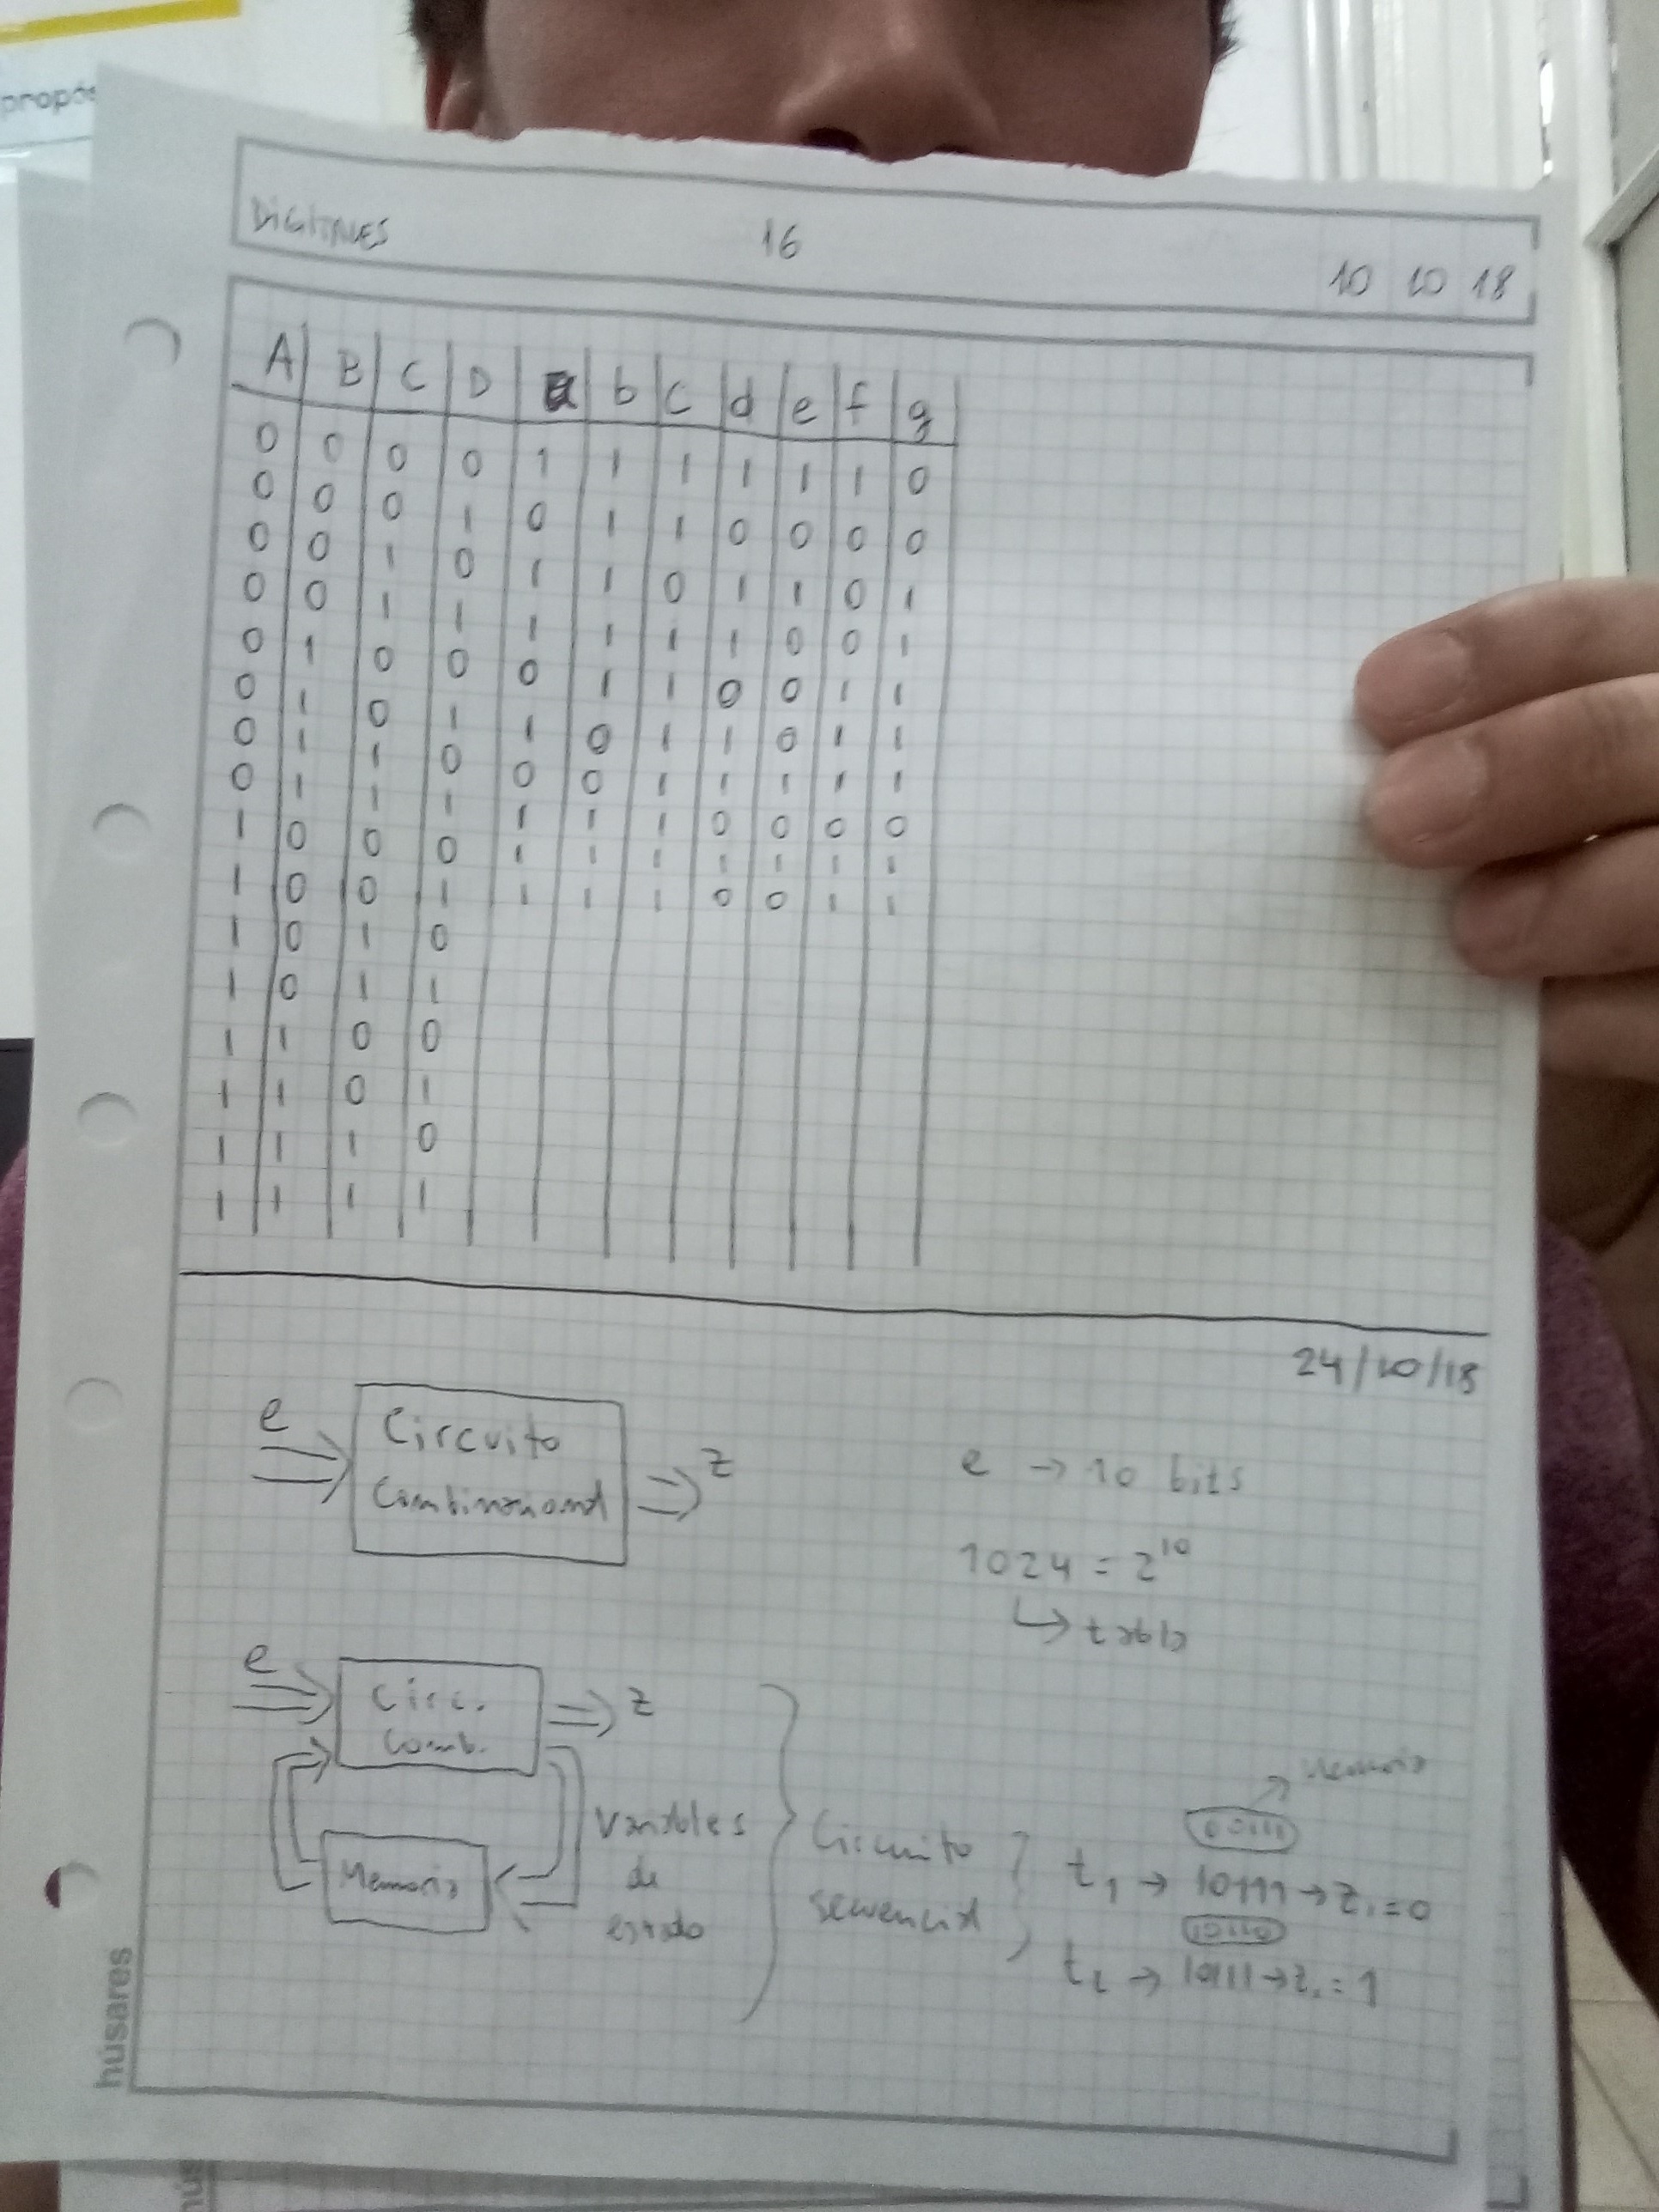 propós
DIGITALES 16 10 10 18
A B C D a b c d e f g
0 0 0 0 1 1 1 1 1 1 0
0 0 0 1 0 1 1 0 0 0 0
0 0 1 0 1 1 0 1 1 0 1
0 0 1 1 1 1 1 1 0 0 1
0 1 0 0 0 1 1 0 0 1 1
0 1 0 1 1 0 1 1 0 1 1
0 1 1 0 0 0 1 1 1 1 1
0 1 1 1 1 1 1 0 0 0 0
1 0 0 0 1 1 1 1 1 1 1
1 0 0 1 1 1 1 0 0 1 1
1 0 1 0
1 0 1 1
1 1 0 0
1 1 0 1
1 1 1 0
1 1 1 1
24/10/18
e
Circuito
Combinacional
z
e → 10 bits
1024 = 2^10
↳ tabla
e
Circ.
Comb.
z
Memoria
Variables
de
estado
Circuito
secuencial
Memoria
t1 → 10111 → z1 = 0
t2 → 10111 → z1 = 1
húsares
hús